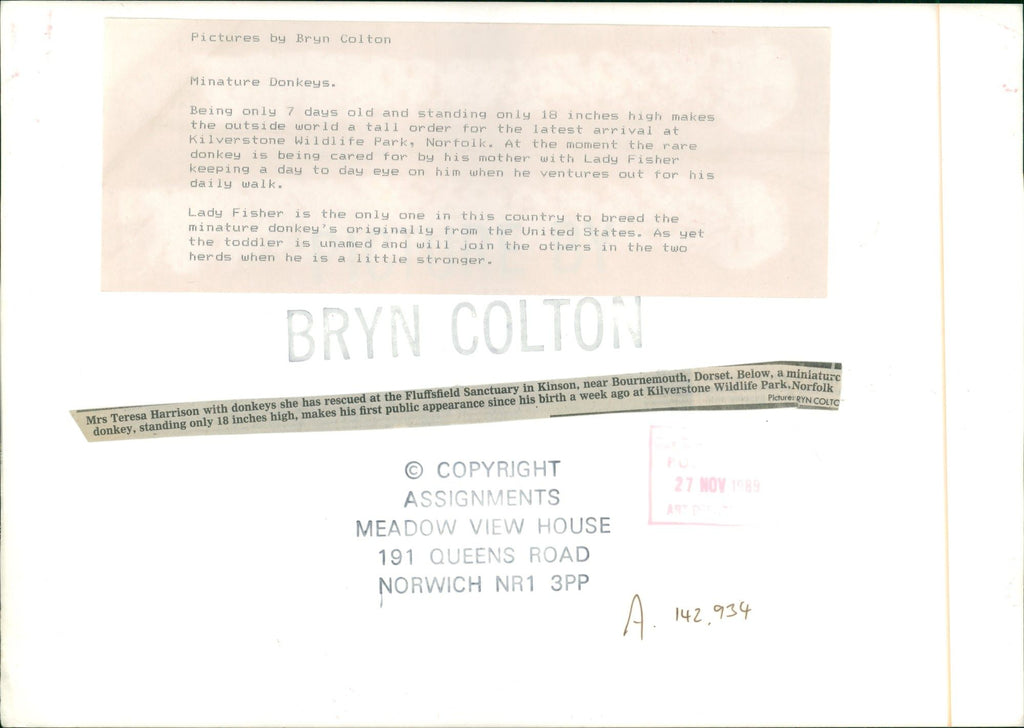 Pictures by Bryn Colton
Minature Donkeys.
Being only 7 days old and standing only 18 inches high makes
the outside world a tall order for the latest arrival at
Kilverstone Wildlife Park, Norfolk. At the moment the rare
donkey is being cared for by his mother with Lady Fisher
keeping a day to day eye on him when he ventures out for his
daily walk.
Lady Fisher is the only one in this country to breed the
minature donkey's originally from the United States. As yet
the toddler is unamed and will join the others in the two
herds when he is a little stronger.
BRYN COLTON
Mrs Teresa Harrison with donkeys she has rescued at the Fluffsfield Sanctuary in Kinson, near Bournemouth, Dorset. Below, a miniature
donkey, standing only 18 inches high, makes his first public appearance since his birth a week ago at Kilverstone Wildlife Park, Norfolk
Picture: RYN COLTO
27 NOV 1989
© COPYRIGHT
ASSIGNMENTS
MEADOW VIEW HOUSE
191 QUEENS ROAD
NORWICH NR1 3PP
A. 142,934